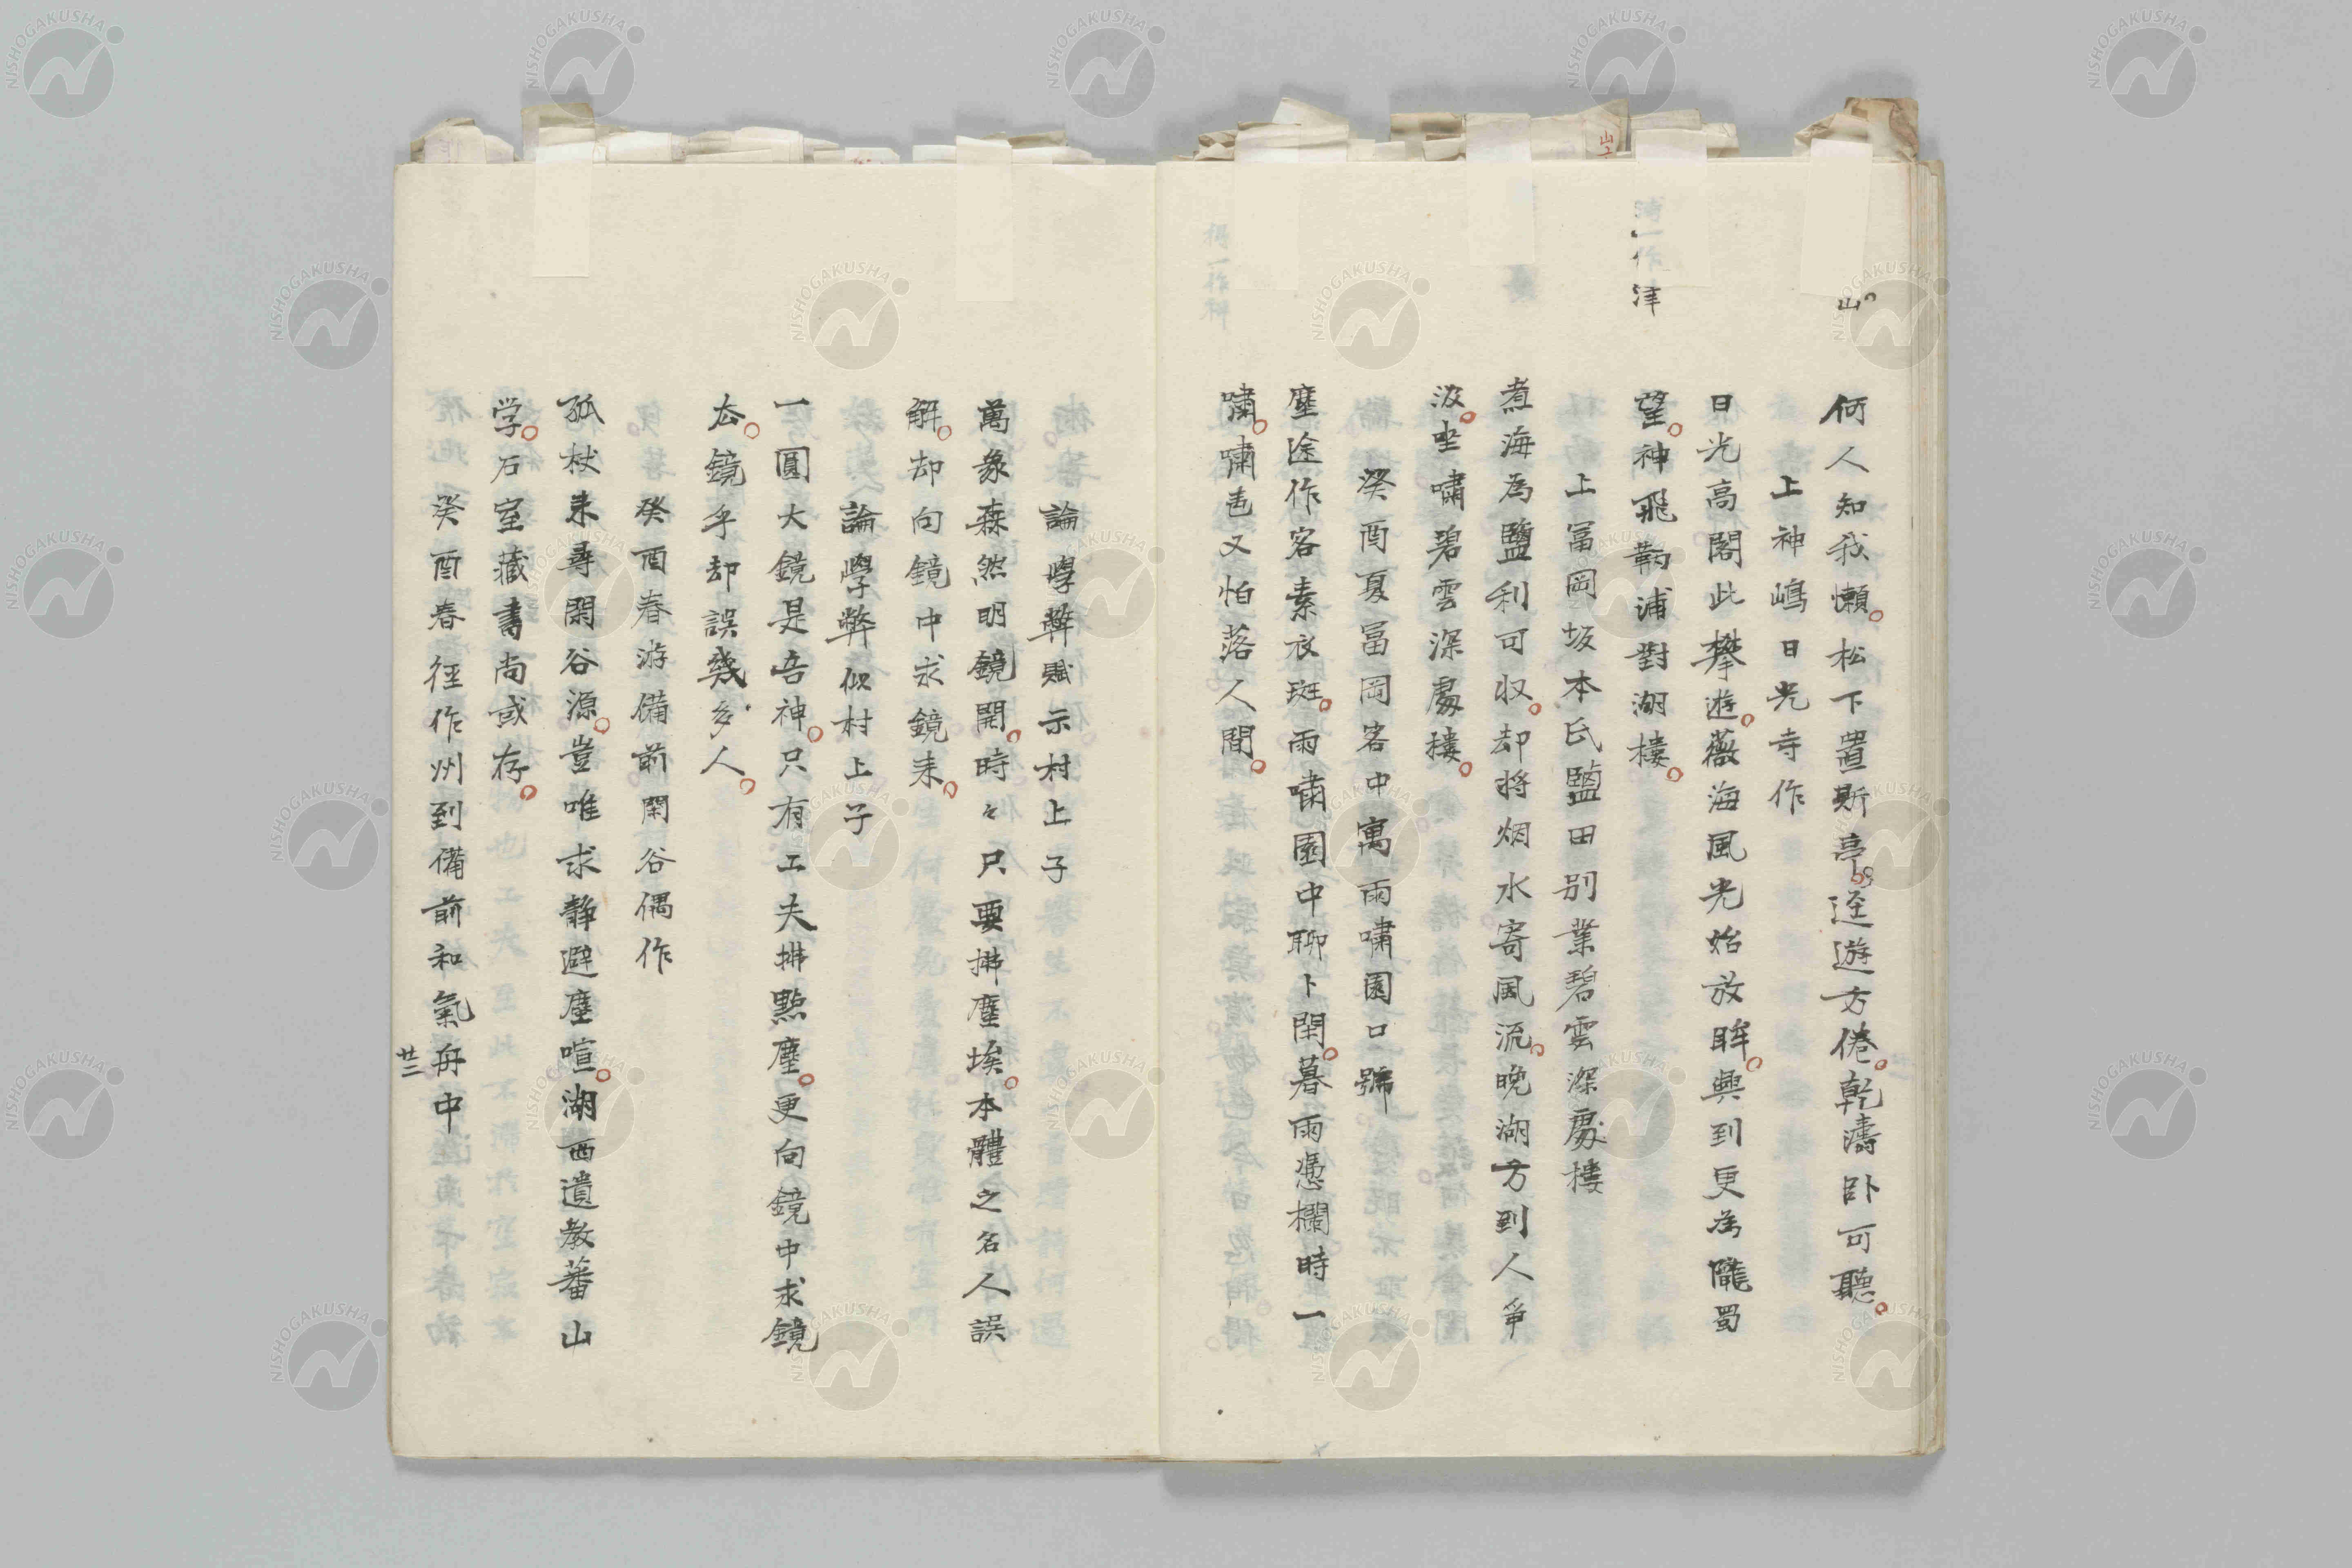 山
何人知我懶。松下置斯亭。逕遊方倦。乾濤卧可聽。
上神嶋日光寺作
日光高閣此攀遊。薇海風光始放眸。興到更為隴蜀
一作津
望。神飛鞆浦對湖樓。
上冨岡坂本氏鹽田別業碧雲深處樓
煮海為鹽利可収。却将烟水寄風流。晩湖方到人爭
汲。坐嘯碧雲深處樓。
癸酉夏冨岡客中寓雨嘯園口號
塵途作客素衣斑。雨嘯園中聊卜閑。暮雨憑欄時一
嘯。嘯声又怕落人間。
論學弊賦示村上子
萬象森然明鏡開。時々只要拂塵埃。本體之名人誤
解。却向鏡中求鏡来。
論學弊似村上子
一圓大鏡是吾神。只有工夫拂點塵。更向鏡中求鏡
去。鏡乎却誤幾多人。
癸酉春游備前閑谷偶作
孤杖来尋閑谷源。豈唯求静避塵喧。湖西遺教蕃山
学。石室藏書尚或存。
癸酉春徑作州到備前和氣舟中
廿二